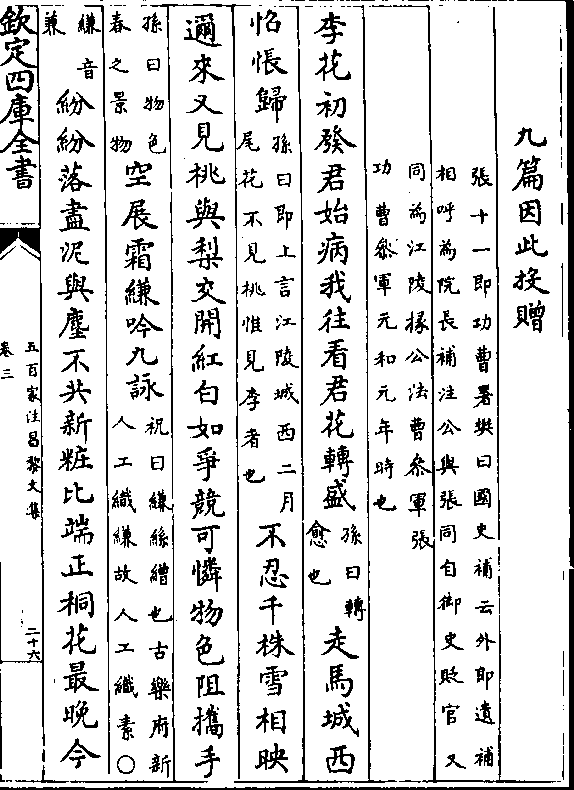 九篇因此投贈
張十一即功曹署樊曰國史補云外郎遺補
相呼爲院長補注公與張同自御史貶官又
同爲江陵掾公法曹參軍張
功曹參軍元和元年時也
李花初發君始病我往看君花轉盛
孫曰轉
愈也
走馬城西
惆悵歸
孫曰即上言江陵城西二月
尾花不見桃惟見李者也
不忍千株雪相映
邇來又見桃與梨交開紅白如爭競可憐物色阻攜手
孫曰物色
春之景物
空展霜縑吟九詠
祝曰縑絲繒也古樂府新
人工織縑故人工織素○
縑音
兼
紛紛落盡泥與塵不共新粧比端正桐花最晚今
欽定四庫全書
五百家注昌黎文集
卷三
二十六